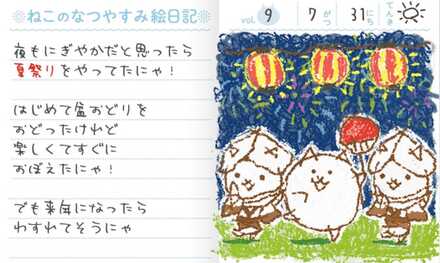 ❊ねこのなつやすみ絵日記❊
vol. 9 7がつ 31にち てんき
夜もにぎやかだと思ったら
夏祭りをやってたにゃ！
はじめて盆おどりを
おどったけれど
楽しくてすぐに
おぼえたにゃ！
でも来年になったら
わすれてそうにゃ